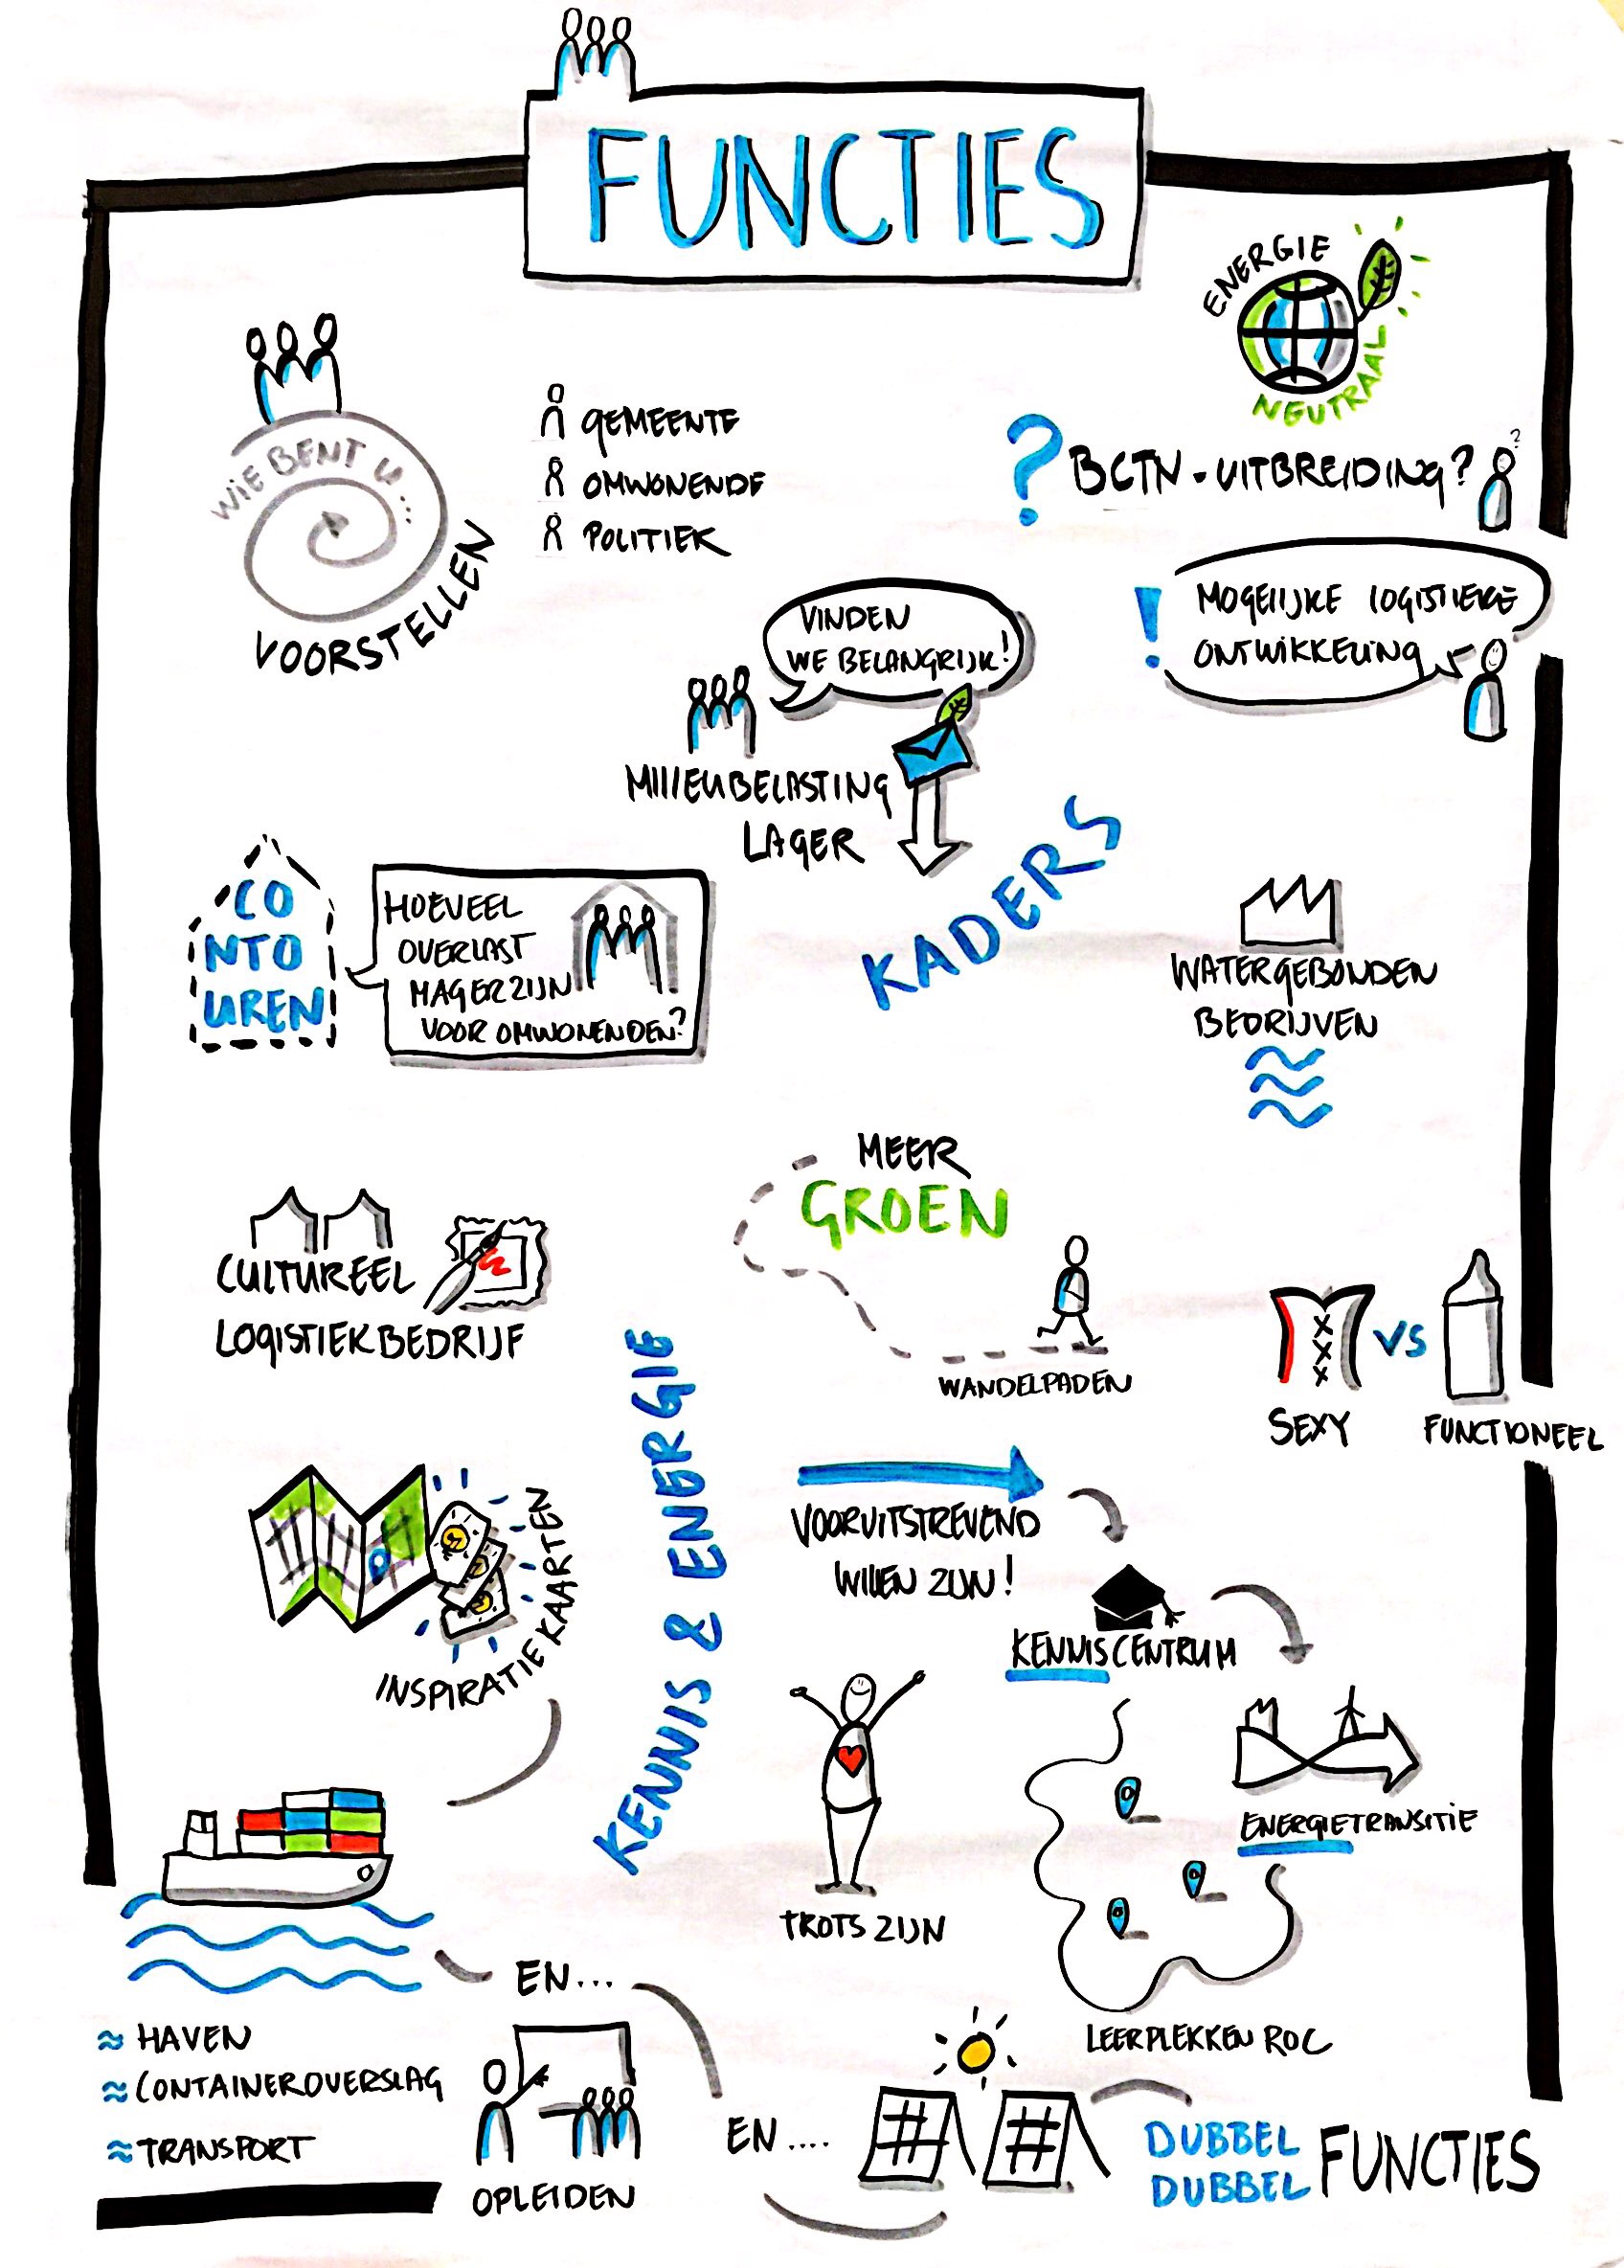 FUNCTIES
ENERGIE
NEUTRAAL
WIE BENT U...
VOORSTELLEN
GEMEENTE
OMWONENDE
POLITIEK
? BCTN-UITBREIDING?
?
! MOGELIJKE LOGISTIEKE
ONTWIKKELING
VINDEN
WE BELANGRIJK!
MILIEUBELASTING
LAGER
KADERS
CO
NTO
UREN
HOEVEEL
OVERLAST
MAG ER ZIJN
VOOR OMWONENDEN?
WATERGEBONDEN
BEDRIJVEN
MEER
GROEN
WANDELPADEN
CULTUREEL
LOGISTIEK BEDRIJF
XXX
VS
SEXY
FUNCTIONEEL
KENNIS & ENERGIE
INSPIRATIEKAARTEN
VOORUITSTREVEND
WILLEN ZIJN!
KENNISCENTRUM
ENERGIETRANSITIE
TROTS ZIJN
LEERPLEKKEN ROC
≈ HAVEN
≈ CONTAINEROVERSLAG
≈ TRANSPORT
EN...
OPLEIDEN
EN....
DUBBEL
DUBBEL
FUNCTIES